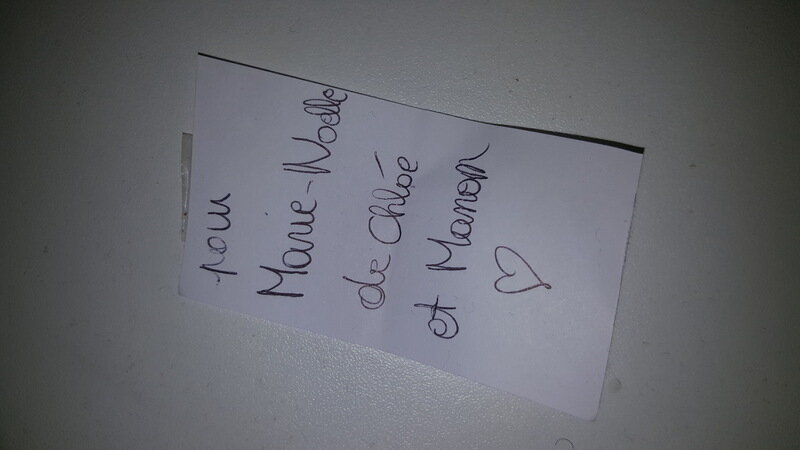 pour
Marie-Noëlle
de Chloé
et Manon